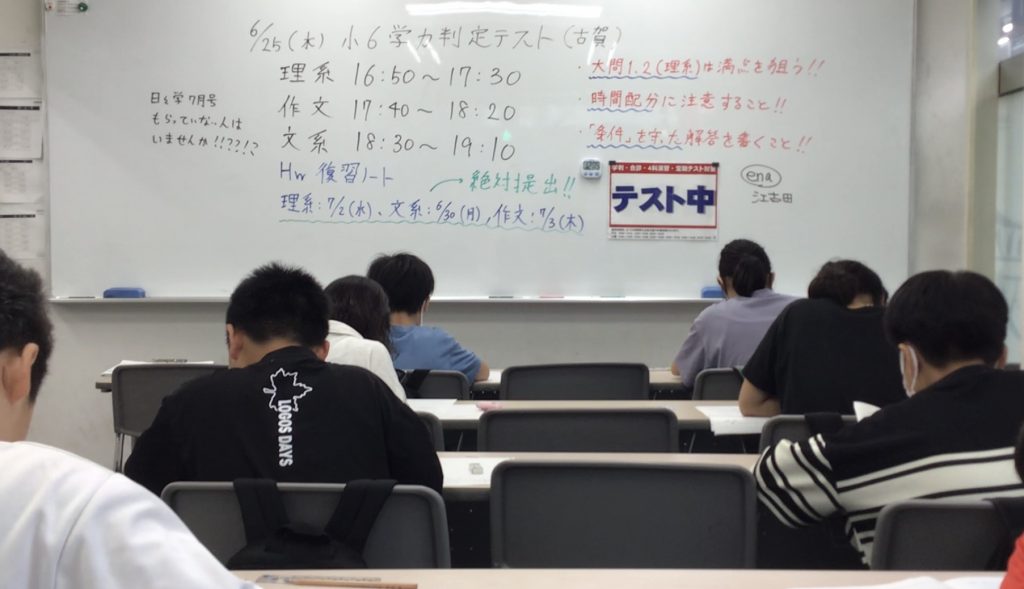 6/25(水) 小6学力判定テスト(古賀)
理系 16:50～17:30
作文 17:40～18:20
文系 18:30～19:10
Hw 復習ノート
絶対提出!!
理系:7/2(水)、文系:6/30(月),作文:7/3(木)
日々学7月号
もらっていない人は
いませんか!!??!?
・大問1.2(理系)は満点を狙う!!
・時間配分に注意すること!!
・「条件」を守った解答を書くこと!!
学判・合評・4科演習・定期テスト対策
テスト中
ena
江古田
LOGOS DAYS